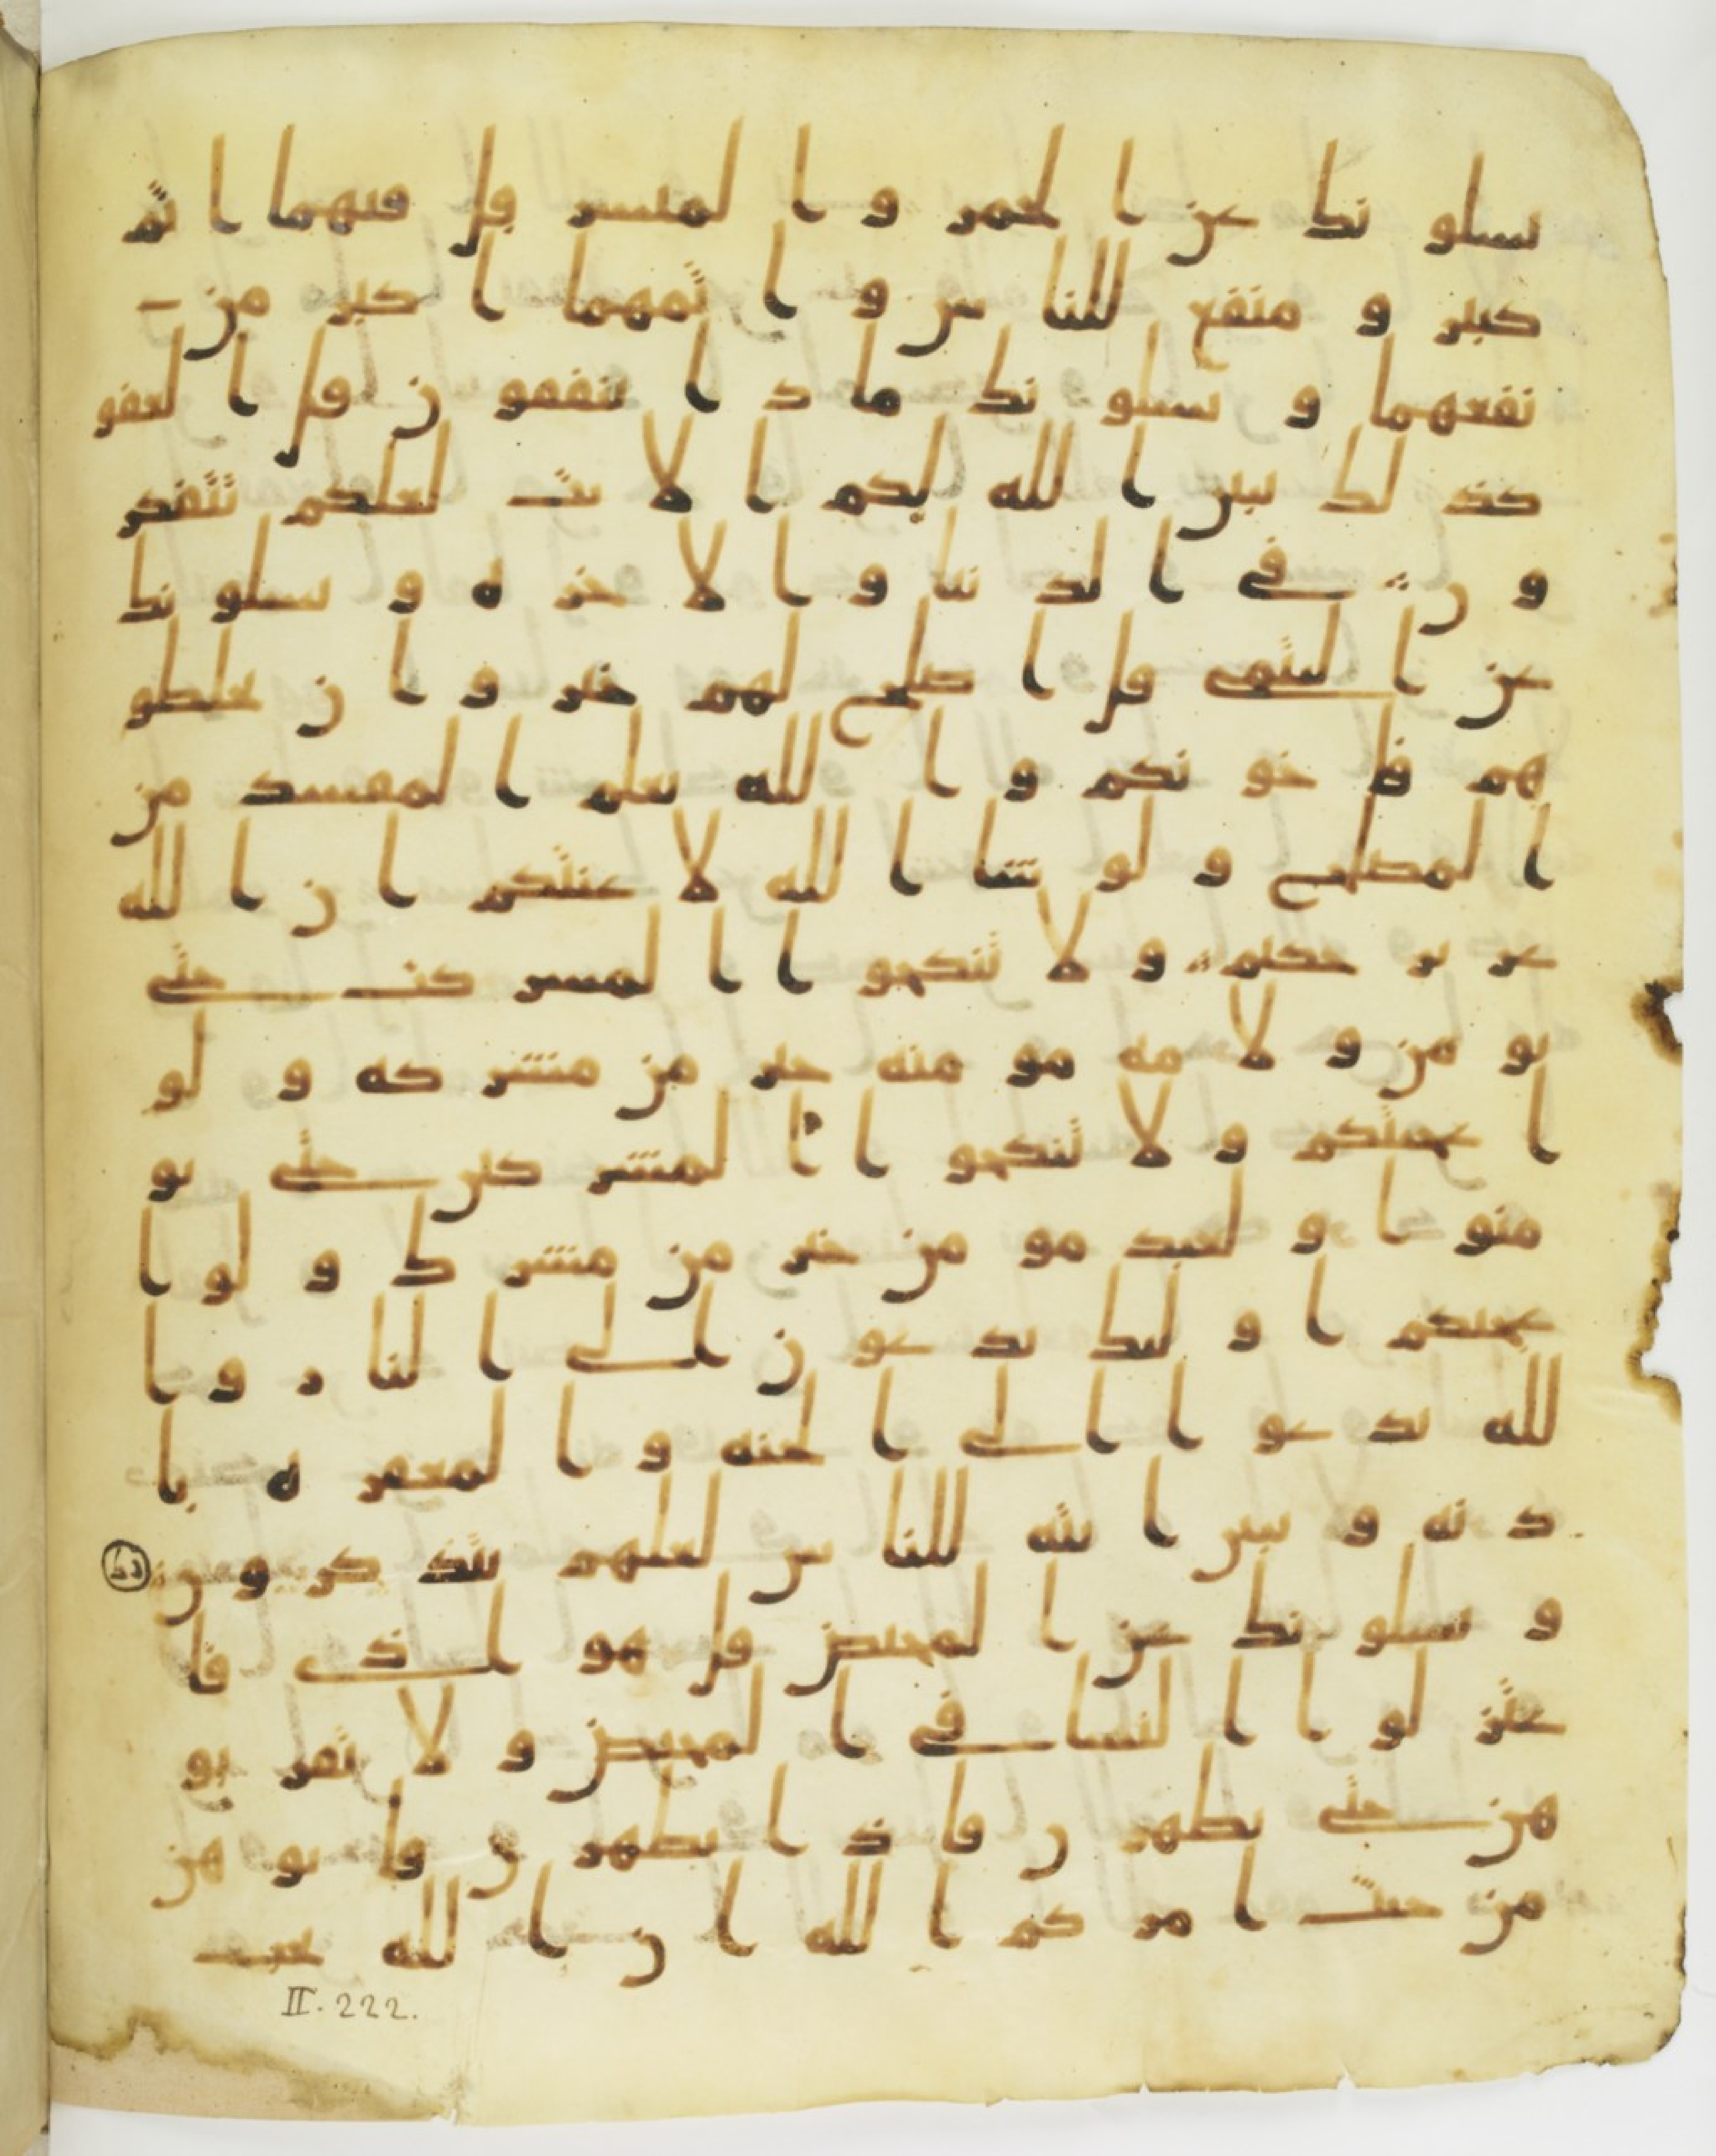 يسلونك عن الخمر والميسر قل فيهما اثم
كبير ومنفع للناس واثمهما اكبر من
نفعهما ويسلونك ماذا ينفقون قل العفو
كذلك يبين الله لكم الايت لعلكم تتفكر
ون في الدنيا والاخره ويسلونك
عن اليتمى قل اصلح لهم خير وان تخلطو
هم فاخونكم والله يعلم المفسد من
المصلح ولو شا الله لاعنتكم ان الله
عزيز حكيم ولا تنكحوا المشركت حتى
يومن ولامه مومنه خير من مشركه ولو
اعجبتكم ولا تنكحوا المشركين حتى يو
منوا ولعبد مومن خير من مشرك ولو ا
عجبكم اوليك يدعون الى النار وا
لله يدعوا الى الجنه والمغفره با
ذنه ويبين ايته للناس لعلهم يتذكرون
ويسلونك عن المحيض قل هو اذى فا
عتزلوا النسا في المحيض ولا تقربو
هن حتى يطهرن فاذا تطهرن فاتوهن
من حيث امركم الله ان الله يحب
II. 222.